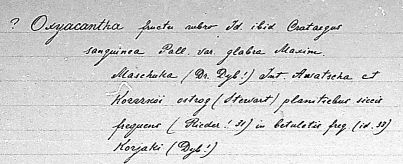 ? Oxyacantha fructu rubro Id. ibid Crataegus
sanguinea Pall. var. glabra Maxim.
Maschuka (Dr. Dyb!) Int. Awatscha et
Kozarnöi ostrog (Stewart) planitiebus siccis
frequens (Rieder! 31) in betuletis freq. (id. 33)
Korjaki (Dyb!)